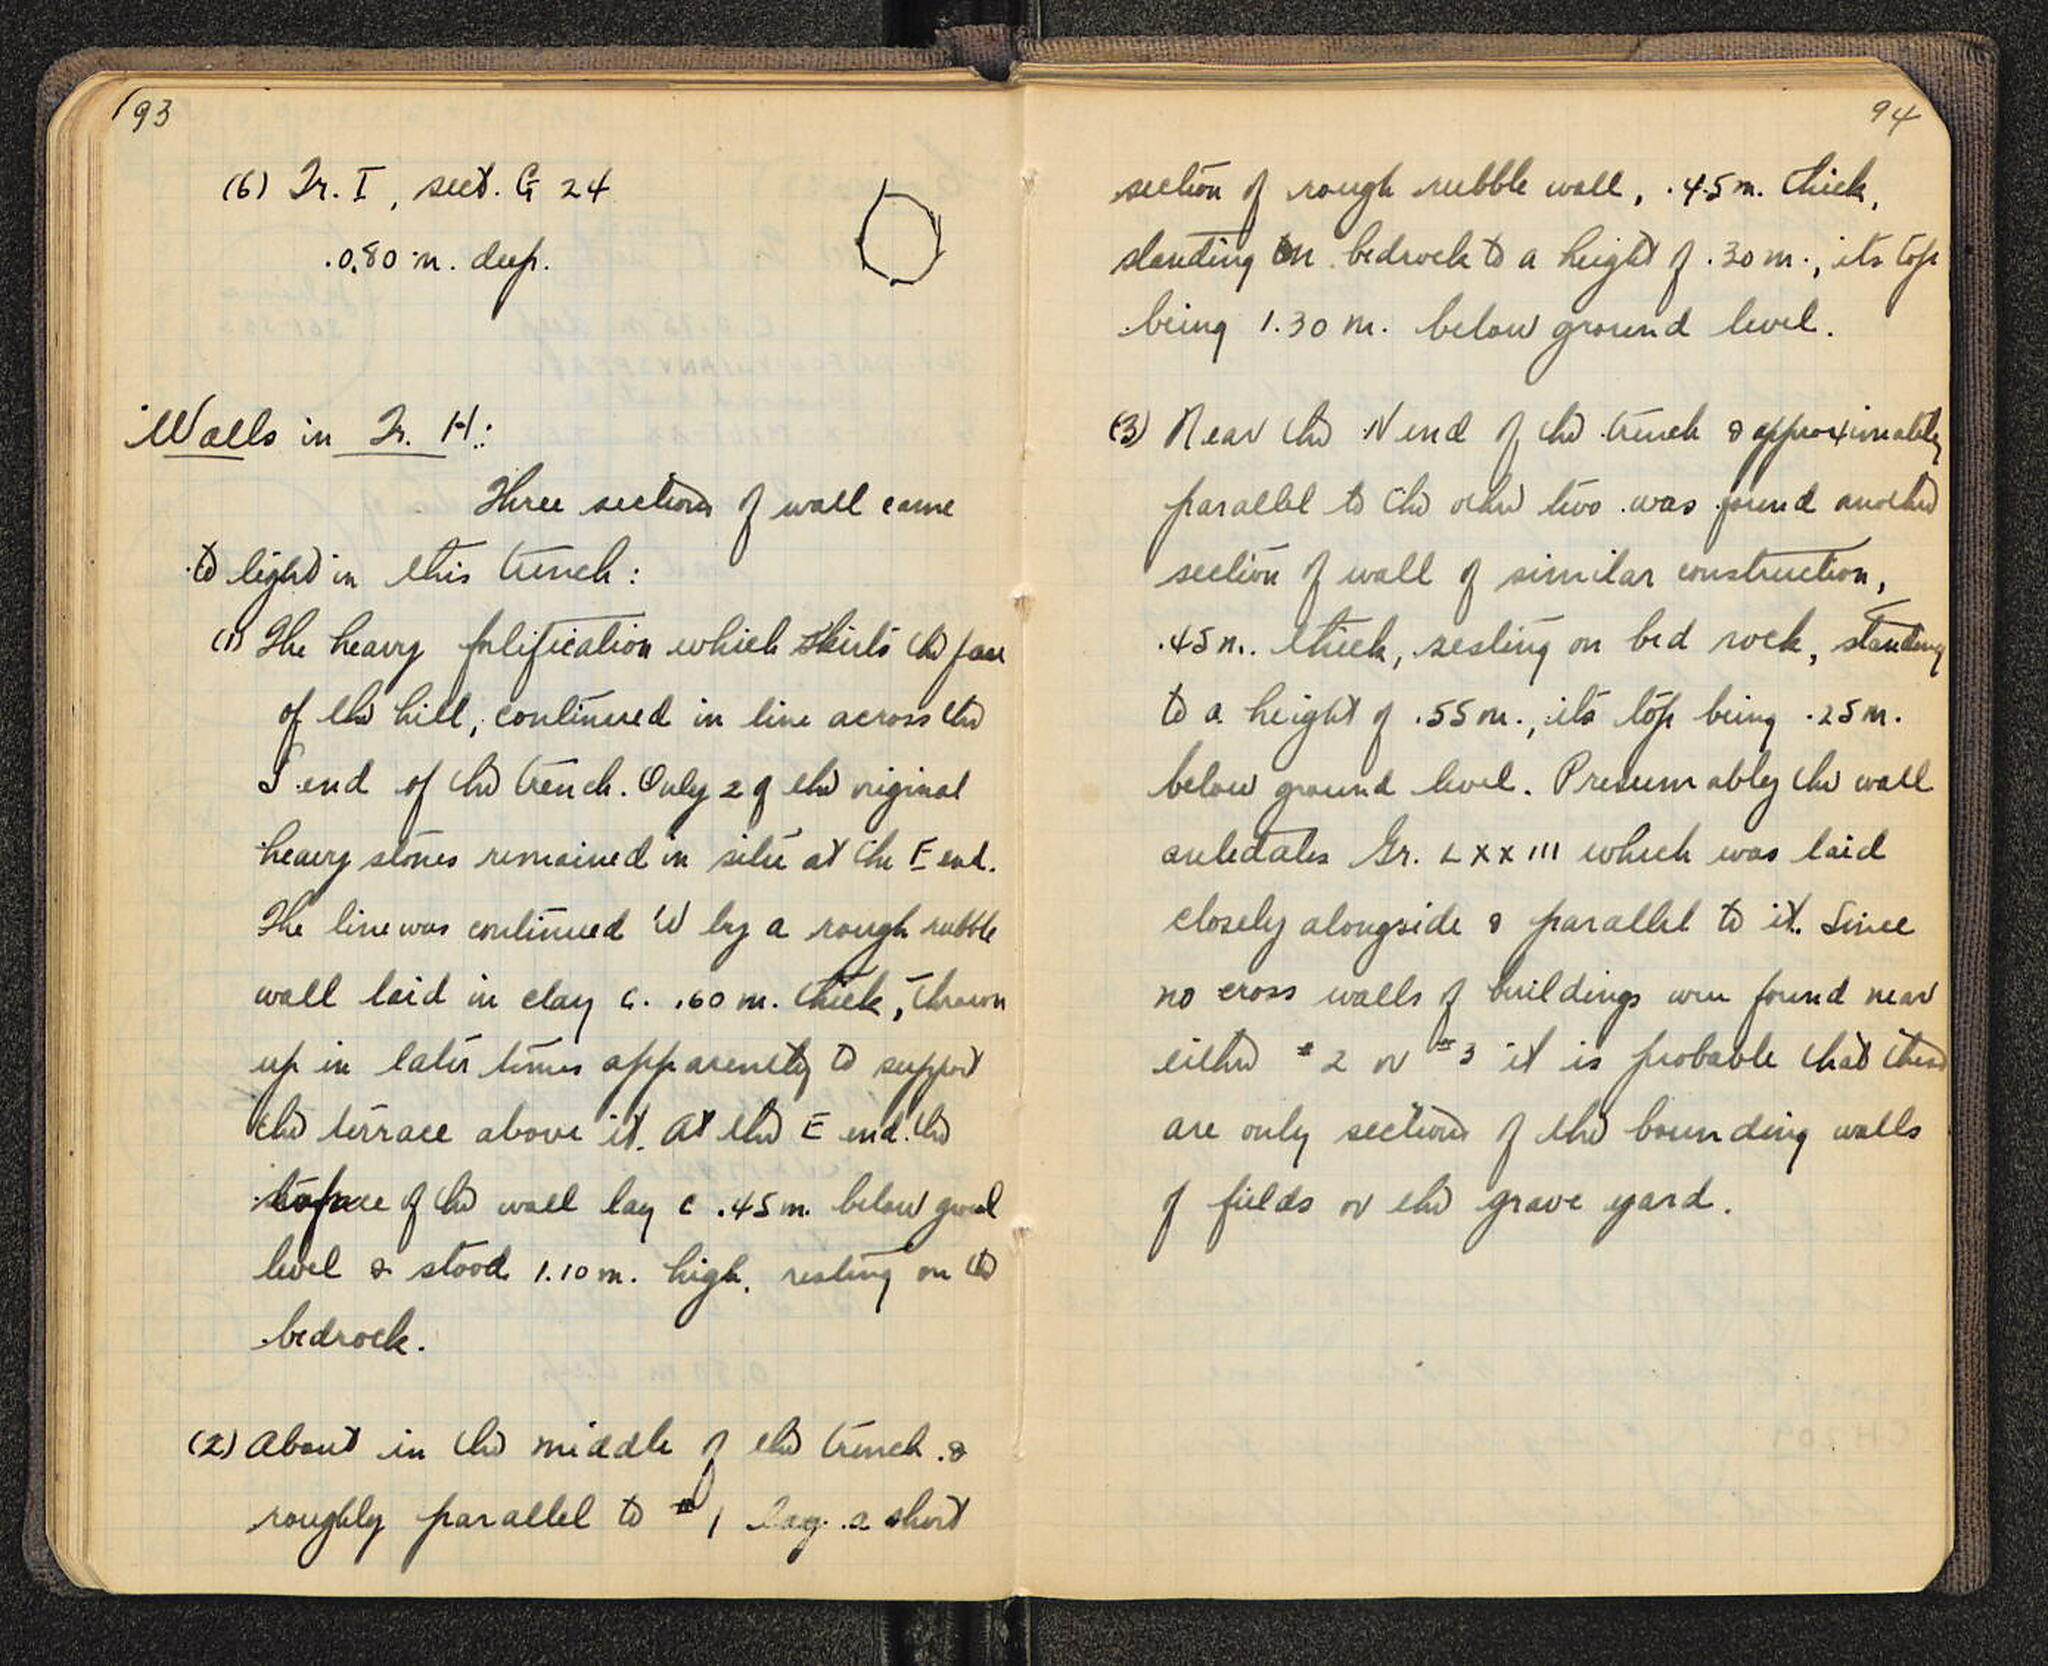 93
(6) Tr. I, sect. G 24
.0.80 m. deep.
Walls in Tr. H:
Three sections of wall came
to light in this trench:
(1) The heavy fortification which skirts the face
of the hill, continued in line across the
S end of the trench. Only 2 of the original
heavy stones remained in situ at the E end.
The line was continued W by a rough rubble
wall laid in clay c. .60 m. thick, thrown
up in later times apparently to support
the terrace above it. At the E end the
of the wall lay c .45 m. below ground
level & stood 1.10 m. high, resting on the
bedrock.
(2) About in the middle of the trench &
roughly parallel to #1 lay a short
94
section of rough rubble wall, .45 m. thick,
standing on bedrock to a height of .30 m., its top
being 1.30 m. below ground level.
(3) Near the N end of the trench & approximately
parallel to the other two was found another
section of wall of similar construction,
.45 m. thick, resting on bed rock, standing
to a height of .55 m., its top being .25 m.
below ground level. Presumably the wall
antedates Gr. LXXIII which was laid
closely alongside & parallel to it. Since
no cross walls of buildings were found near
either #2 or #3 it is probable that these
are only sections of the bounding walls
of fields or the grave yard.